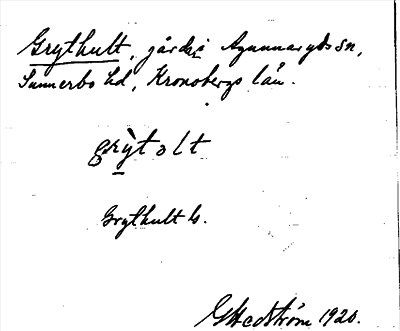 Grythult, gård i Agunnaryds sn,
Sunnerbo hd, Kronobergs län.
grỳtolt
Grythult b.
G Hedström 1920.